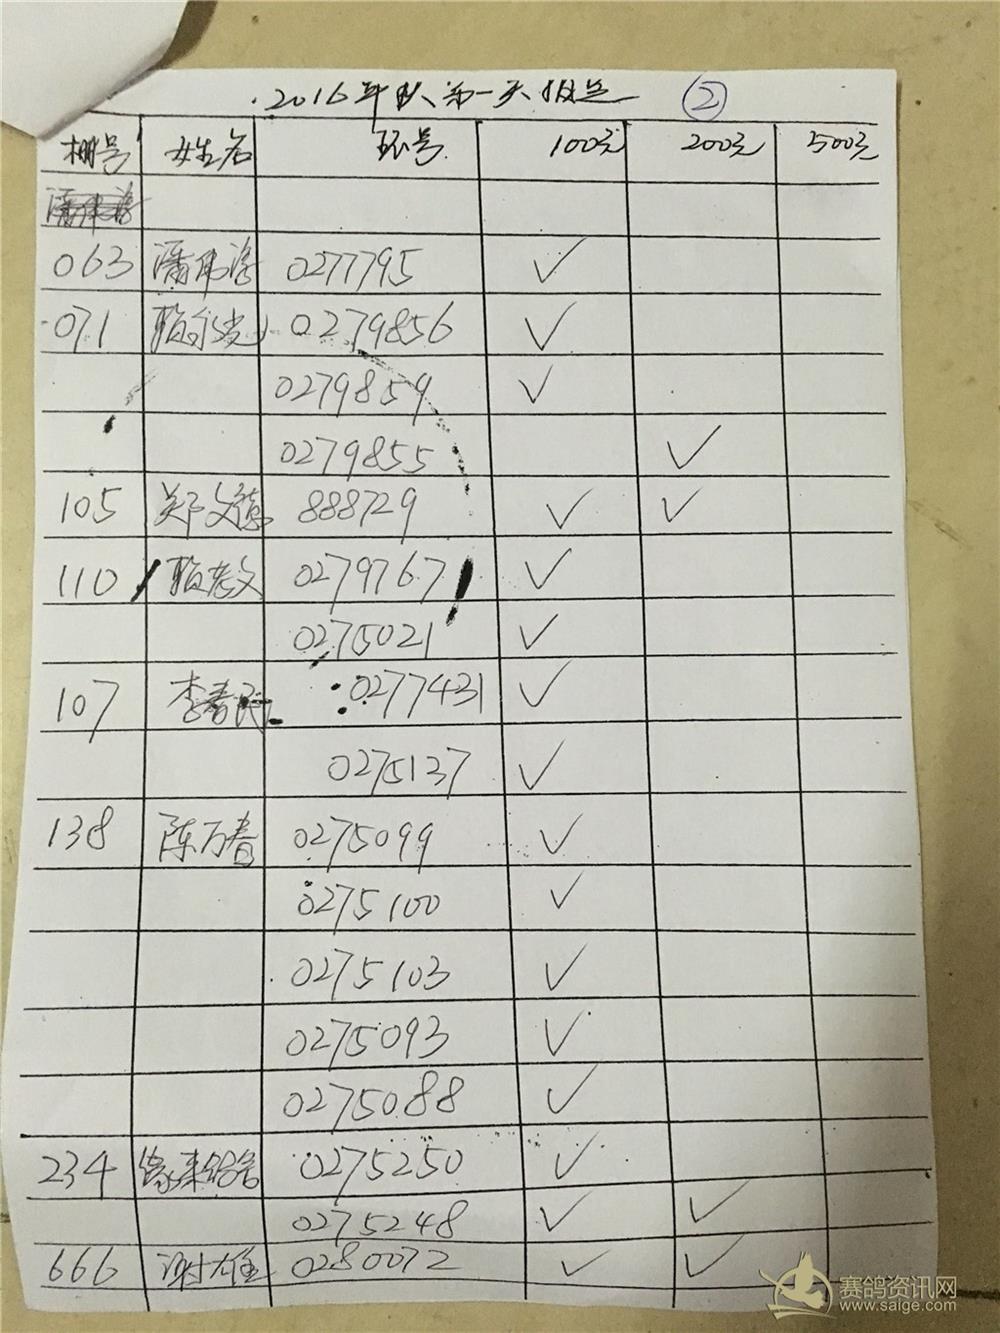 2016年秋第一天 ②
棚号 姓名 环号 100元 200元 500元
063 潘伟 0277795 ✓
071 0279856 ✓
0279859 ✓
0279855 ✓
105 郑文德 888729 ✓ ✓
110 0279767 ✓
0275021 ✓
107 李春 0277431 ✓
0275137 ✓
138 陈万春 0275099 ✓
0275100 ✓
0275103 ✓
0275093 ✓
0275088 ✓
234 缘来鸽舍 0275250 ✓
0275248 ✓ ✓
666 谢雄 0280072 ✓ ✓
赛鸽资讯网
www.saige.com